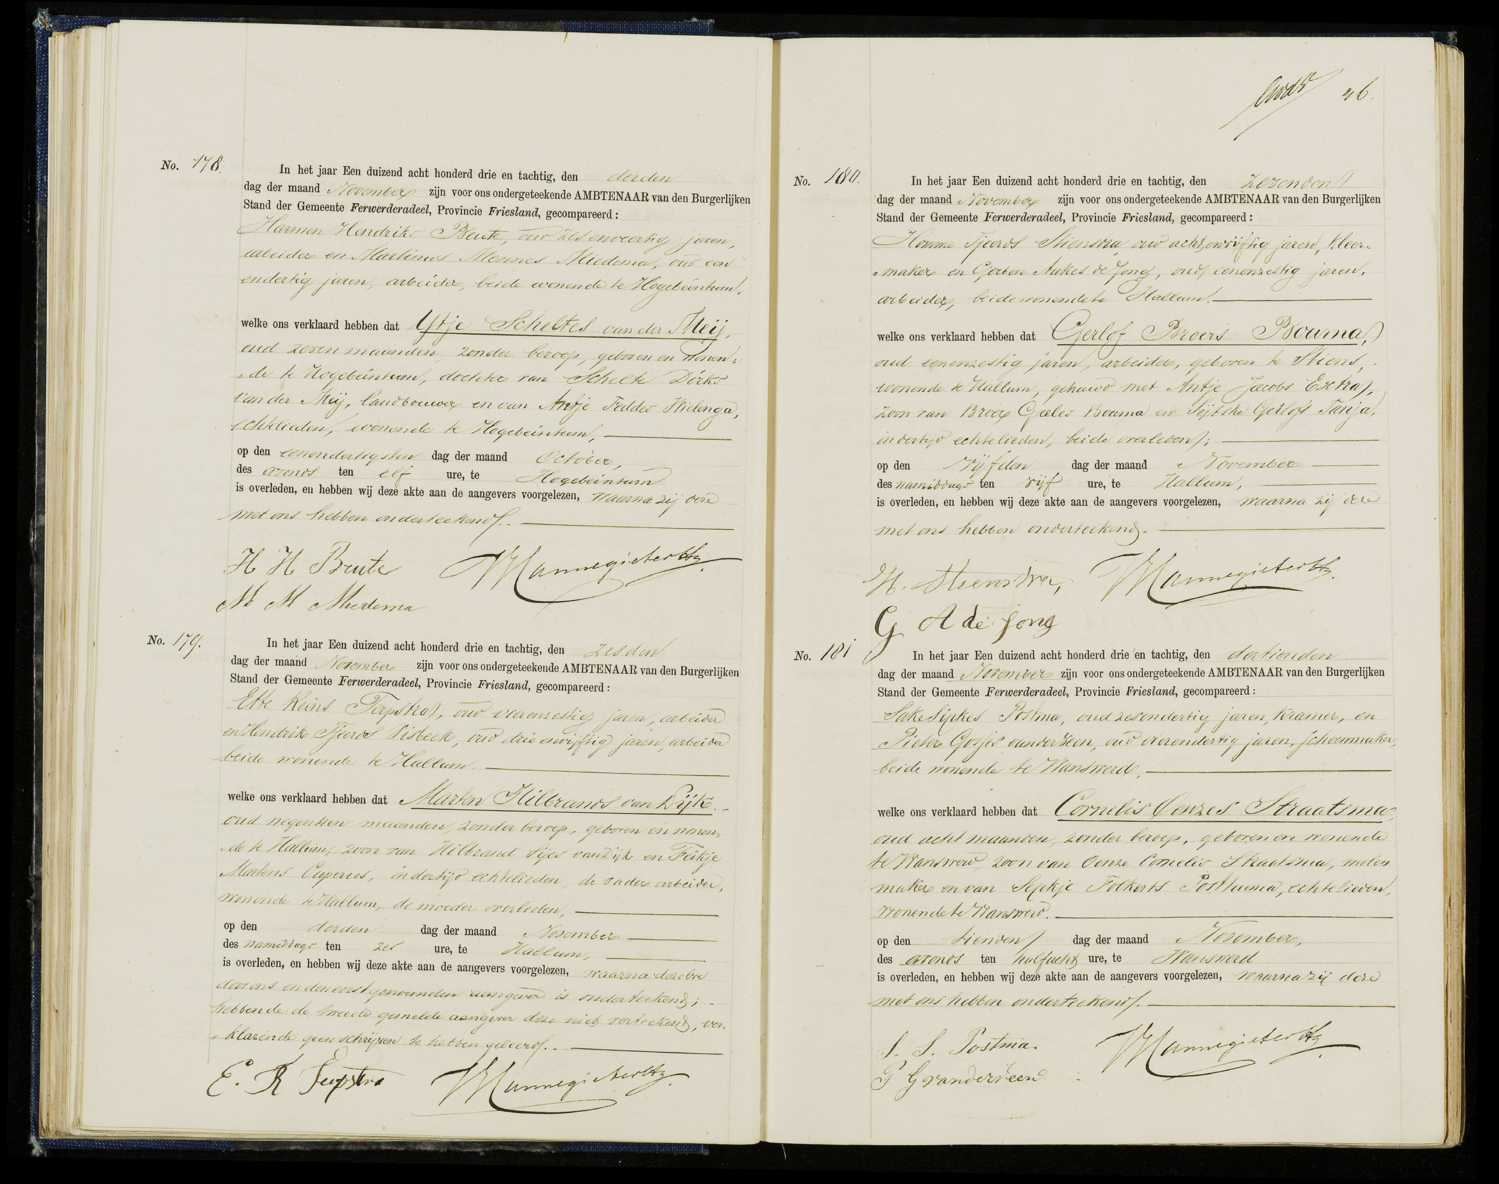 No. 178.
In het jaar Een duizend acht honderd drie en tachtig, den derden
dag der maand November zijn voor ons ondergeteekende AMBTENAAR van den Burgerlijken
Stand der Gemeente Ferwerderadeel, Provincie Friesland, gecompareerd:
Harmen Hendriks Beute, oud zesenveertig jaren,
arbeider en Martinus Mennes Miedema, oud een
endertig jaren, arbeider, beide wonende te Hogebeintum,
welke ons verklaard hebben dat Ytje Scheltes van der Meij,
oud zeven maanden, zonder beroep, geboren en wonen-
de te Hogebeintum, dochter van Schelte Dirks
van der Meij, landbouwer en van Antje Feddes Hielenga,
echtelieden, wonende te Hogebeintum,
op den eenendertigsten dag der maand October,
des avonds ten elf ure, te Hogebeintum
is overleden, en hebben wij deze akte aan de aangevers voorgelezen, waarna zij deze
met ons hebben onderteekend.
H H Beute
M M Miedema
No. 179.
In het jaar Een duizend acht honderd drie en tachtig, den zesden
dag der maand November zijn voor ons ondergeteekende AMBTENAAR van den Burgerlijken
Stand der Gemeente Ferwerderadeel, Provincie Friesland, gecompareerd:
Ette Reins Terpstra, oud vierenzestig jaren, arbeider
en Hendrik Tjeerds Visbeek, oud drie envijftig jaren, arbeider
beide wonende te Hallum
welke ons verklaard hebben dat Marten Hilbrands van Dijk
oud negentien maanden, zonder beroep, geboren en wonen-
de te Hallum, zoon van Hilbrand Sijes van Dijk en Feikje
Martens Cuperus, indertijd echtelieden, de vader arbeider,
wonende te Hallum, de moeder overleden,
op den derden dag der maand November
des namiddags ten zes ure, te Hallum,
is overleden, en hebben wij deze akte aan de aangevers voorgelezen, waarna dezelve
door ons en den eerstgenoemden aangever is onderteekend,
hebbende de tweede gemelde aangever deze niet onderteekend, ver-
klarende geen schrijven te hebben geleerd.
E. R Terpstra
46.
No. 180.
In het jaar Een duizend acht honderd drie en tachtig, den zesenden
dag der maand November zijn voor ons ondergeteekende AMBTENAAR van den Burgerlijken
Stand der Gemeente Ferwerderadeel, Provincie Friesland, gecompareerd:
Homme Tjeerds Steenstra, oud achtenvijftig jaren, kleer-
maker en Gerben Aukes de Jong, oud eenenzestig jaren,
arbeider, beide wonende te Hallum,
welke ons verklaard hebben dat Gerlof Broers Bouma,
oud eenenzestig jaren, arbeider, geboren te Stiens,
wonende te Hallum, gehuwd met Antje Jacobs Extra,
zoon van Broer Geeles Bouma en Sijtske Gerlofs Tanja,
indertijd echtelieden, beide overleden,
op den vijfden dag der maand November
des namiddags ten vijf ure, te Hallum,
is overleden, en hebben wij deze akte aan de aangevers voorgelezen, waarna zij deze
met ons hebben onderteekend.
H. Steenstra,
G A de Jong
No. 181
In het jaar Een duizend acht honderd drie en tachtig, den dertienden
dag der maand November zijn voor ons ondergeteekende AMBTENAAR van den Burgerlijken
Stand der Gemeente Ferwerderadeel, Provincie Friesland, gecompareerd:
Sake Sipkes Postma, oud zesendertig jaren, kramer, en
Pieter Gosses van der Veen, oud vierendertig jaren, schoenmaker,
beide wonende te Wanswerd,
welke ons verklaard hebben dat Cornelis Oenzes Straatsma
oud acht maanden, zonder beroep, geboren en wonende
te Wanswerd, zoon van Oenze Cornelis Straatsma, molen
maker en van Sepkje Folkerts Posthuma, echtelieden,
wonende te Wanswerd.
op den tienden dag der maand November,
des avonds ten halfacht ure, te Wanswerd
is overleden, en hebben wij deze akte aan de aangevers voorgelezen, waarna zij deze
met ons hebben onderteekend.
S. S. Postma.
P G van der Veen